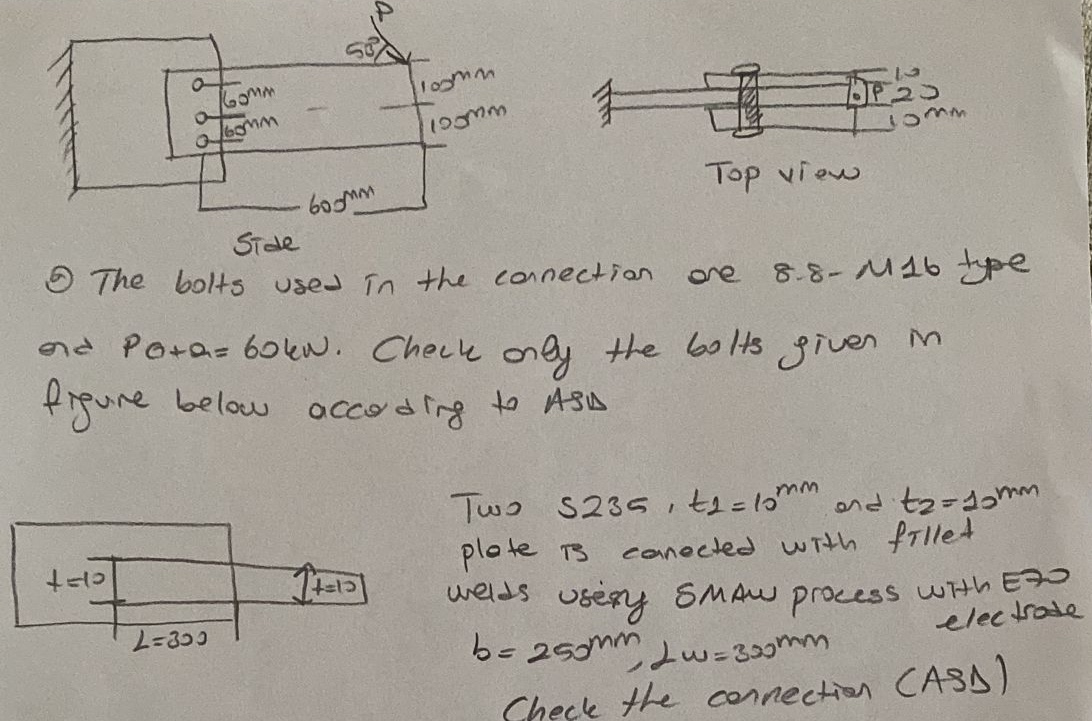 P
50°
100mm
100mm
60mm
60mm
600mm
Side
10
P 20
10mm
Top view
⑤ The bolts used in the connection are 8.8-M16 type
and PG+Q=60kN. Check only the bolts given in
figure below according to ASD
Two S235, t1=10mm and t2=10mm
plate is conected with fillet
welds useing SMAW process with E70
electrode
b=250mm, Lw=300mm
Check the connection (ASD)
t=10
t=10
L=300